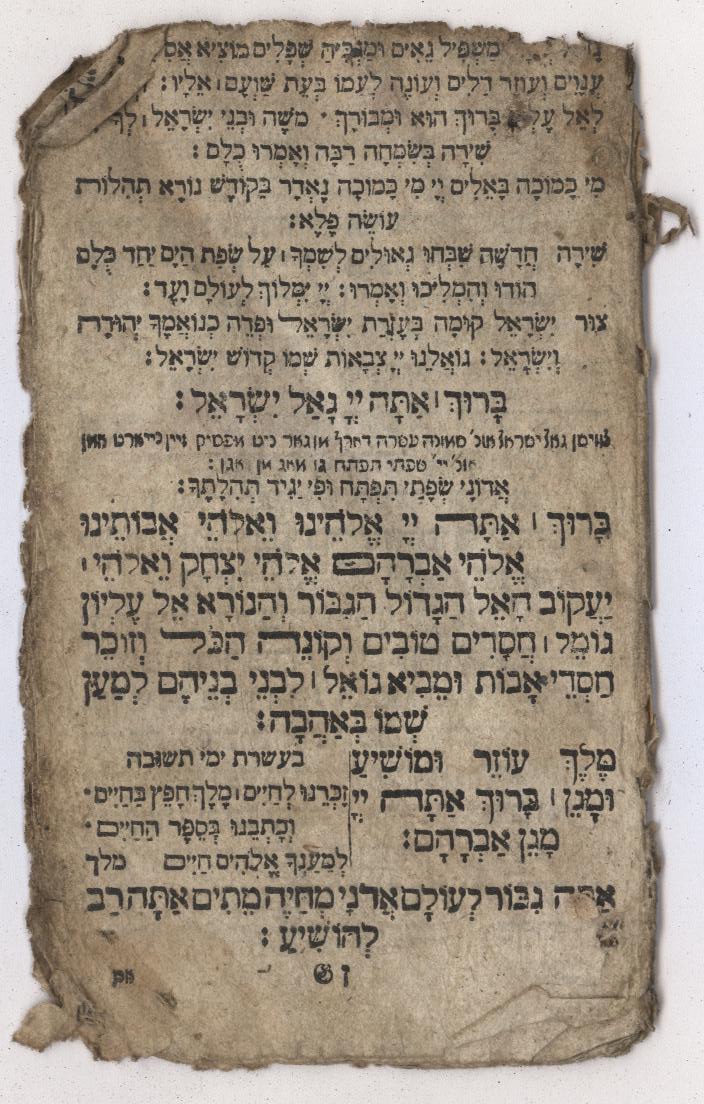 מַשְׁפִּיל גֵּאִים וּמַגְבִּיהַּ שְׁפָלִים מוֹצִיא אֲסִ
עֲנָוִים וְעוֹזֵר דַּלִּים וְעוֹנֶה לְעַמּוֹ בְּעֵת שַׁוְּעָם׀ אֵלָיו:
לְאֵל עֶלְיוֹן בָּרוּךְ הוּא וּמְבוֹרָךְ · מֹשֶׁה וּבְנֵי יִשְׂרָאֵל׀ לְךָ
שִׁירָה בְּשִׂמְחָה רַבָּה וְאָמְרוּ כֻלָּם:
מִי כָּמוֹכָה בָּאֵלִים יְיָ מִי כָּמוֹכָה נֶאְדָּר בַּקּוֹדֶשׁ נוֹרָא תְהִלּוֹת
עוֹשֵׂה פֶלֶא:
שִׁירָה חֲדָשָׁה שִׁבְּחוּ גְאוּלִים לְשִׁמְךָ׀ עַל שְׂפַת הַיָּם יַחַד כֻּלָּם
הוֹדוּ וְהִמְלִיכוּ וְאָמְרוּ: יְיָ יִמְלוֹךְ לְעוֹלָם וָעֶד:
צוּר יִשְׂרָאֵל קוּמָה בְּעֶזְרַת יִשְׂרָאֵל וּפְדֵה כִנְאֻמֶךָ יְהוּדָה
וְיִשְׂרָאֵל: גּוֹאֲלֵנוּ יְיָ צְבָאוֹת שְׁמוֹ קְדוֹשׁ יִשְׂרָאֵל:
בָּרוּךְ׀ אַתָּה יְיָ גָּאַל יִשְׂרָאֵל:
צווישן גאל ישראל אונ' שמונה עשרה דארף מן גאר ניט מפסיק זיין נייארט מאן
אונ' יי' שפתי תפתח גו מאג מן זאגן:
אֲדוֹנָי שְׂפָתַי תִּפְתָּח וּפִי יַגִּיד תְּהִלָּתֶךָ:
בָּרוּךְ׀ אַתָּה יְיָ אֱלֹהֵינוּ וֵאלֹהֵי אֲבוֹתֵינוּ
אֱלֹהֵי אַבְרָהָם אֱלֹהֵי יִצְחָק וֵאלֹהֵי׀
יַעֲקוֹב הָאֵל הַגָּדוֹל הַגִּבּוֹר וְהַנּוֹרָא אֵל עֶלְיוֹן
גּוֹמֵל׀ חֲסָדִים טוֹבִים וְקוֹנֵה הַכֹּל וְזוֹכֵר
חַסְדֵי אָבוֹת וּמֵבִיא גוֹאֵל׀ לִבְנֵי בְנֵיהֶם לְמַעַן
שְׁמוֹ בְּאַהֲבָה:
מֶלֶךְ עוֹזֵר וּמוֹשִׁיעַ
וּמָגֵן׀ בָּרוּךְ אַתָּה יְיָ
מָגֵן אַבְרָהָם:
בעשרת ימי תשובה
זָכְרֵנוּ לְחַיִּים׀ מֶלֶךְ חָפֵץ בַּחַיִּים·
וְכָתְבֵנוּ בְּסֵפֶר הַחַיִּים·
לְמַעַנְךָ אֱלֹהִים חַיִּים מלך
אַתָּה גִבּוֹר לְעוֹלָם אֲדֹנָי מְחַיֵּה מֵתִים אַתָּה רַב
לְהוֹשִׁיעַ: